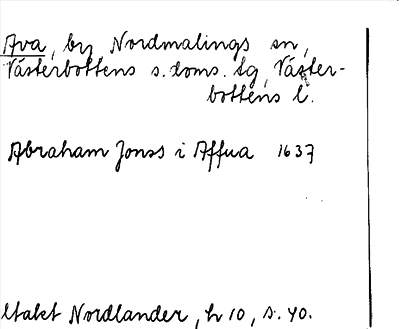 Ava, by Nordmalings sn,
Västerbottens s. doms. tg, Väster-
bottens l.
Abraham Jonss i Affua 1637
Utakt Nordlander, h 10, s. 40.